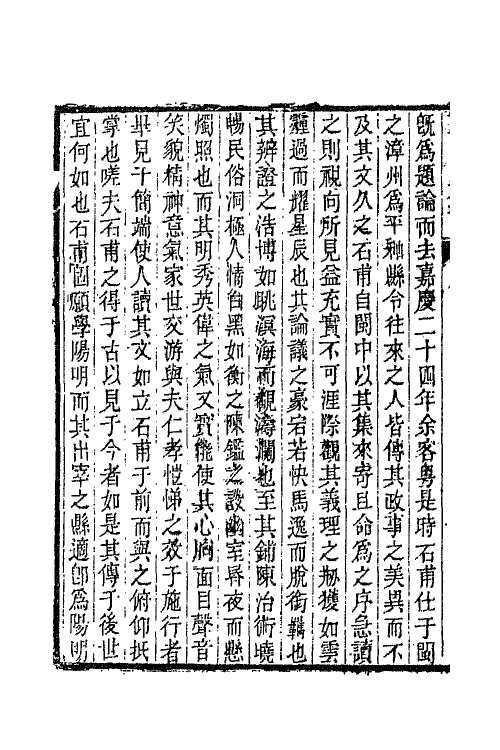 既為題論而去嘉慶二十四年余客粵是時石甫仕于閩
之漳州為平和縣令往來之人皆傳其政事之美異而不
及其文久之石甫自閩中以其集來寄且命為之序急讀
之則視向所見益充實不可涯際觀其義理之剏獲如雲
霾過而耀星辰也其論議之豪宕若快馬逸而脫銜羈也
其辨證之浩博如眺溟海而觀濤瀾也至其鋪陳治術曉
暢民俗洞極人情白黑如衡之陳鑑之設幽室昏夜而懸
燭照也而其明秀英偉之氣又實能使其心胸面目聲音
笑貌精神意氣家世交游與夫仁孝愷悌之效于施行者
畢見于簡端使人讀其文如立石甫于前而與之俯仰抵
掌也嗟夫石甫之得于古以見于今者如是其傳于後世
宜何如也石甫固願學陽明而其出宰之縣適即為陽明